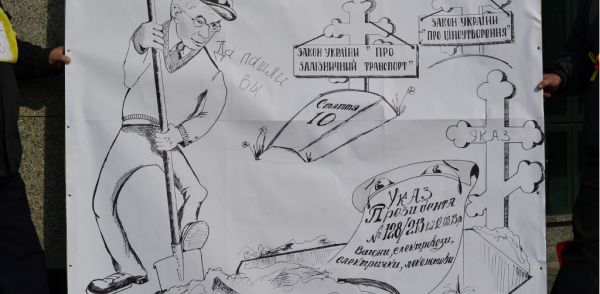 Да пашли
вы
ЗАКОН УКРАЇНИ "ПРО
ЗАЛІЗНИЧНИЙ ТРАНСПОРТ"
Стаття
10
ЗАКОН УКРАЇНИ
"ПРО ЦІНОУТВОРЕННЯ"
УКАЗ
УКАЗ
Президента
№ 128/213 від 12.03.13р.
Вагони, електровози,
електрички, локомотиви